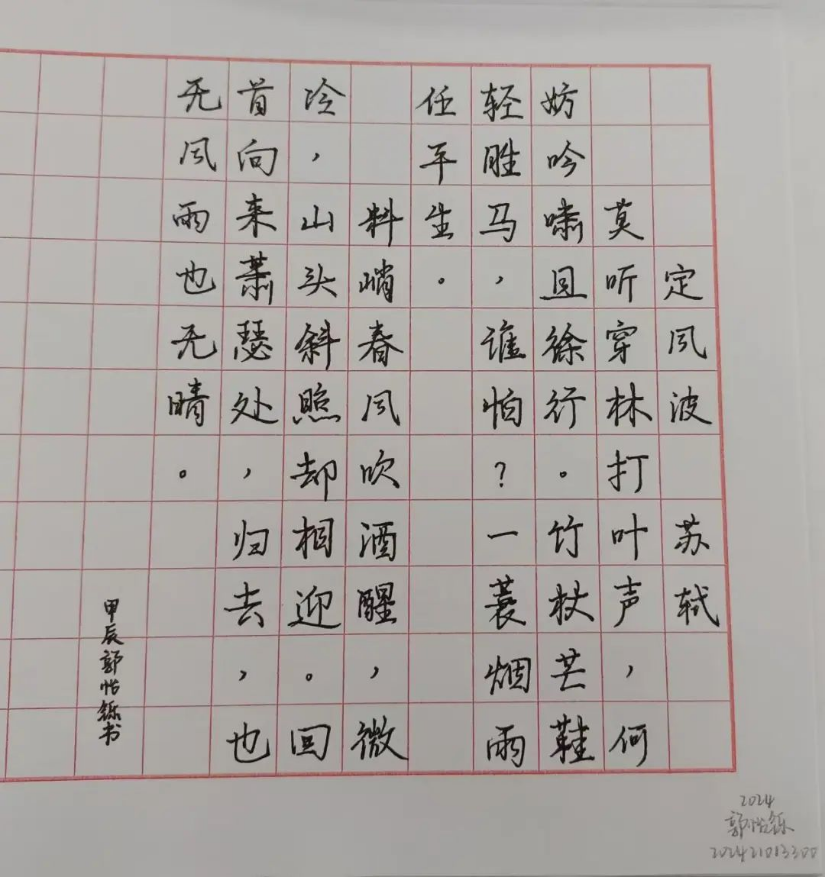 定风波 苏轼
莫听穿林打叶声，何
妨吟啸且徐行。竹杖芒鞋
轻胜马，谁怕？一蓑烟雨
任平生。
料峭春风吹酒醒，微
冷，山头斜照却相迎。回
首向来萧瑟处，归去，也
无风雨也无晴。
甲辰郭怡铄书
2024
郭怡铄
202421013300